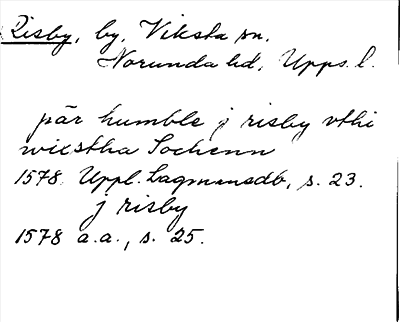 Risby, by, Viksta sn.
Norunda hd, Upps. l.
pär humble j risby vthi
wixstha Sochenn
1578 Uppl. Lagmansdb, s. 23.
j risby
1578 a.a., s. 25.